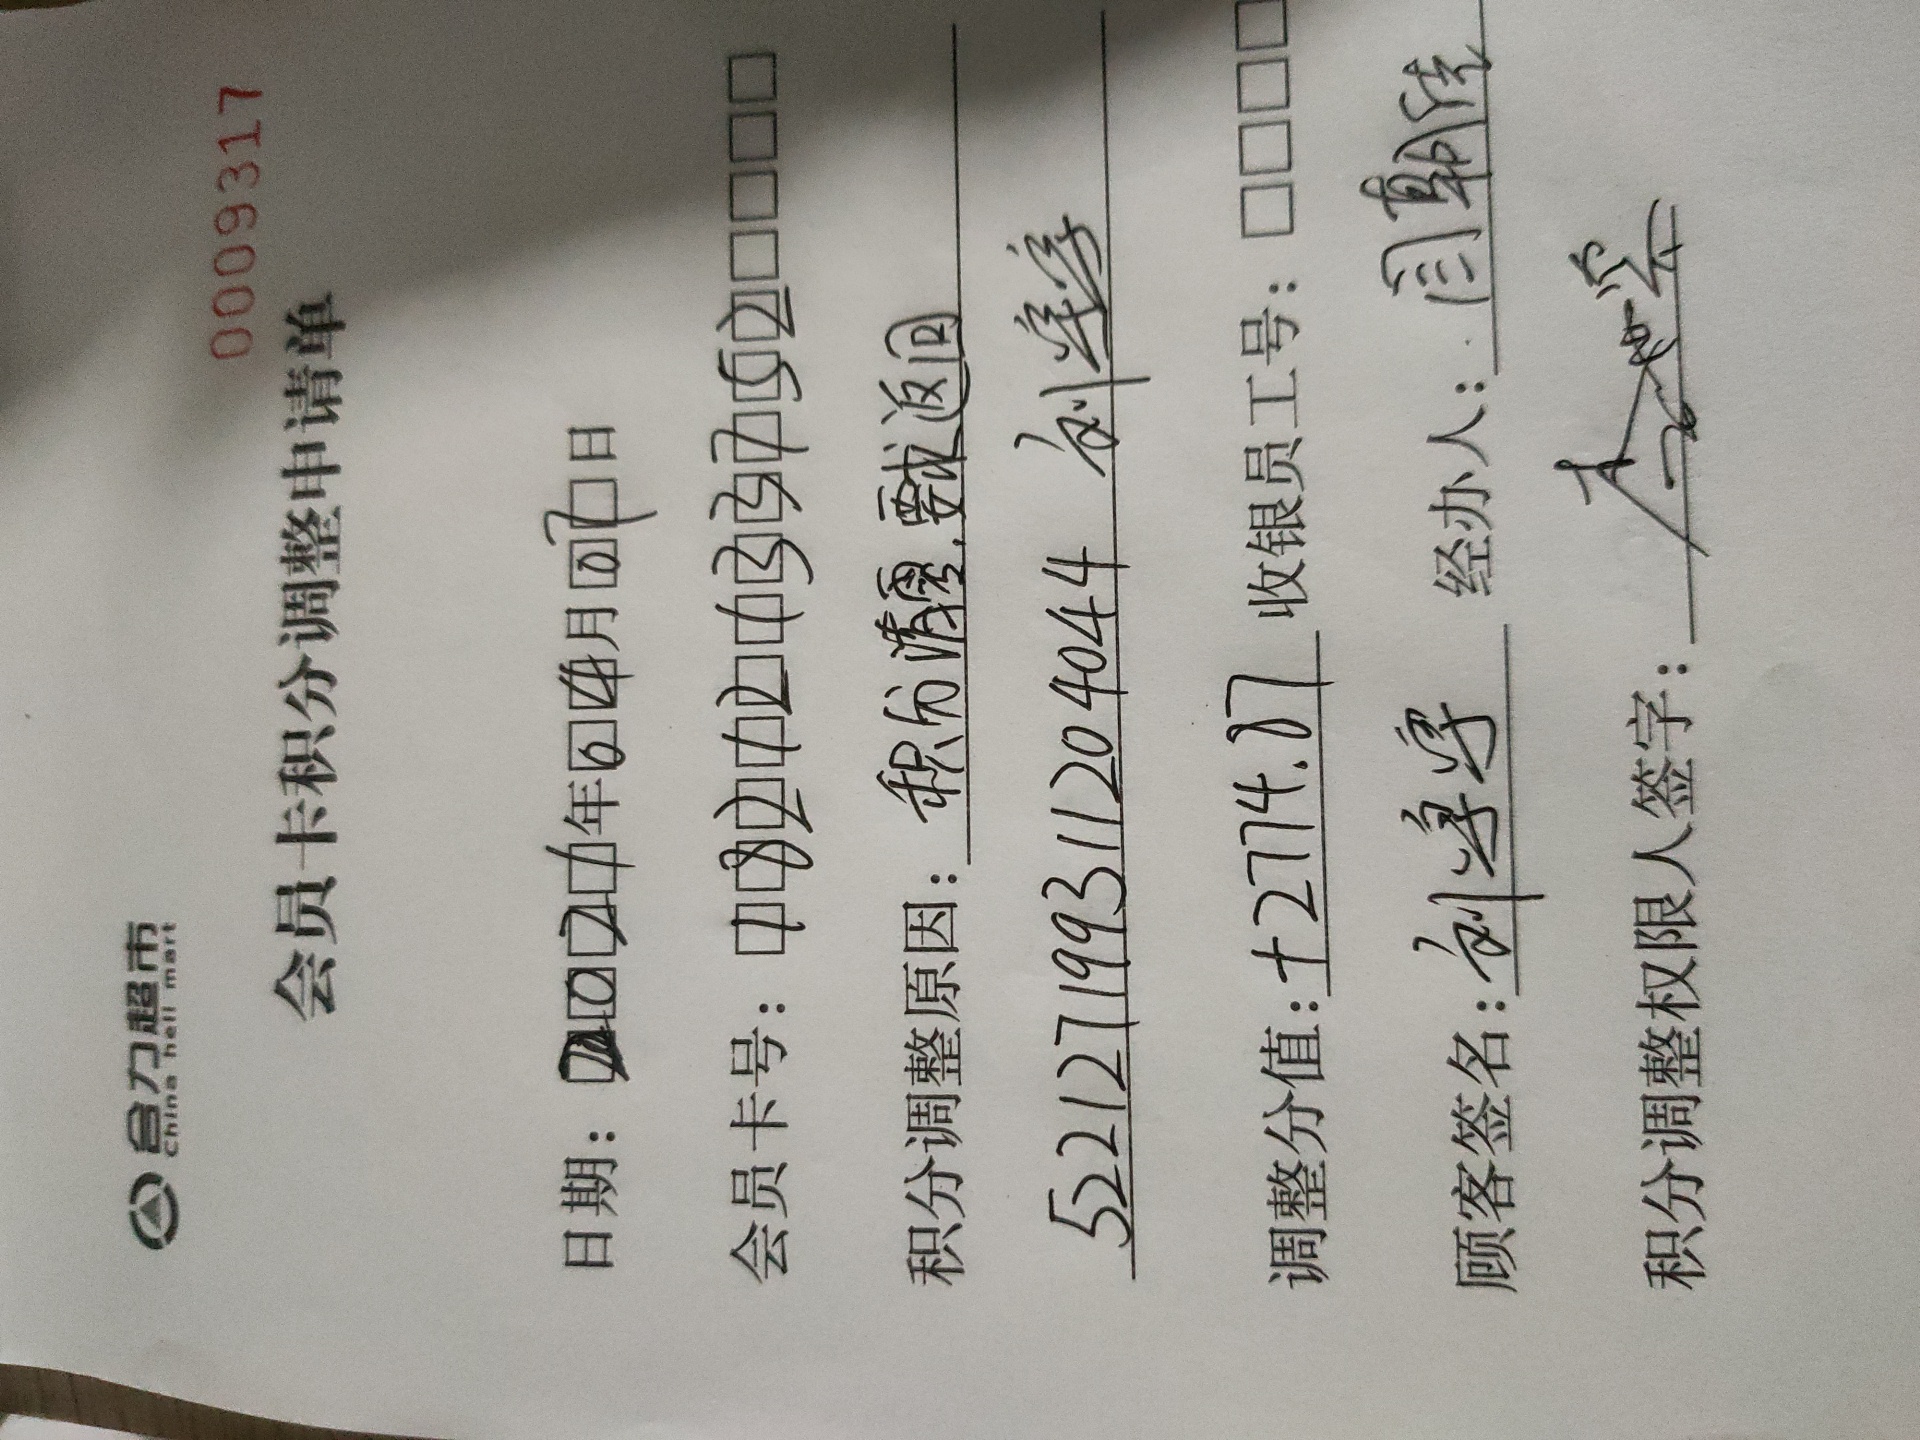 合力超市
China heli mart
0009317
会员卡积分调整申请单
日期：2021年04月07日
会员卡号：18212133752
积分调整原因：积分清零，要求返回
522127199311204044 刘婷婷
调整分值：+2774.87 收银员工号：□□□□
顾客签名：刘婷婷 经办人：
积分调整权限人签字：